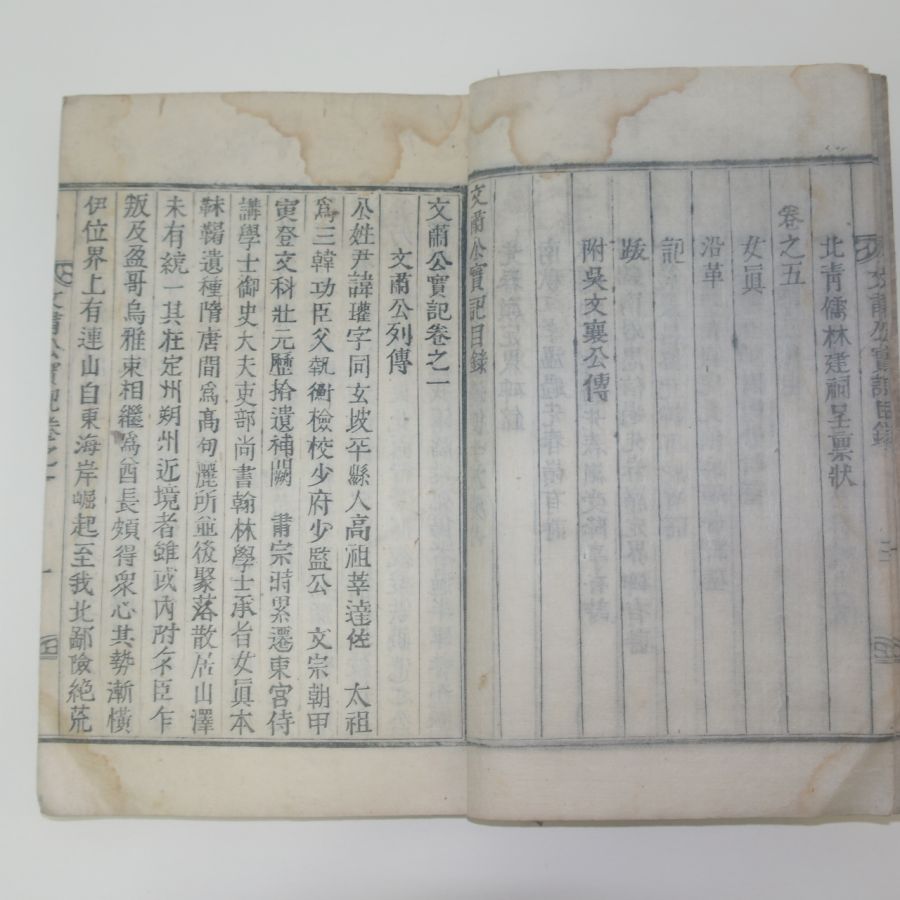 北靑儒林建祠呈稟狀
卷之五
女眞
沿革
記
跋
附吳文襄公傳
文肅公實記目錄
文肅公實記卷之一
文肅公列傳
公姓尹諱瓘字同玄坡平縣人高祖莘達佐 太祖
爲三韓功臣父執衡檢校少府少監公 文宗朝甲
寅登文科壯元歷拾遺補闕 肅宗時累遷東宮侍
講學士御史大夫吏部尙書翰林學士承旨女眞本
靺鞨遺種隋唐間爲高句麗所並後聚落散居山澤
未有統一其在定州朔州近境者雖或內附乍臣乍
叛及盈哥烏雅束相繼爲酋長頗得衆心其勢漸橫
伊位界上有連山自東海岸崛起至我北鄙險絶荒
文肅公實記卷之一
一